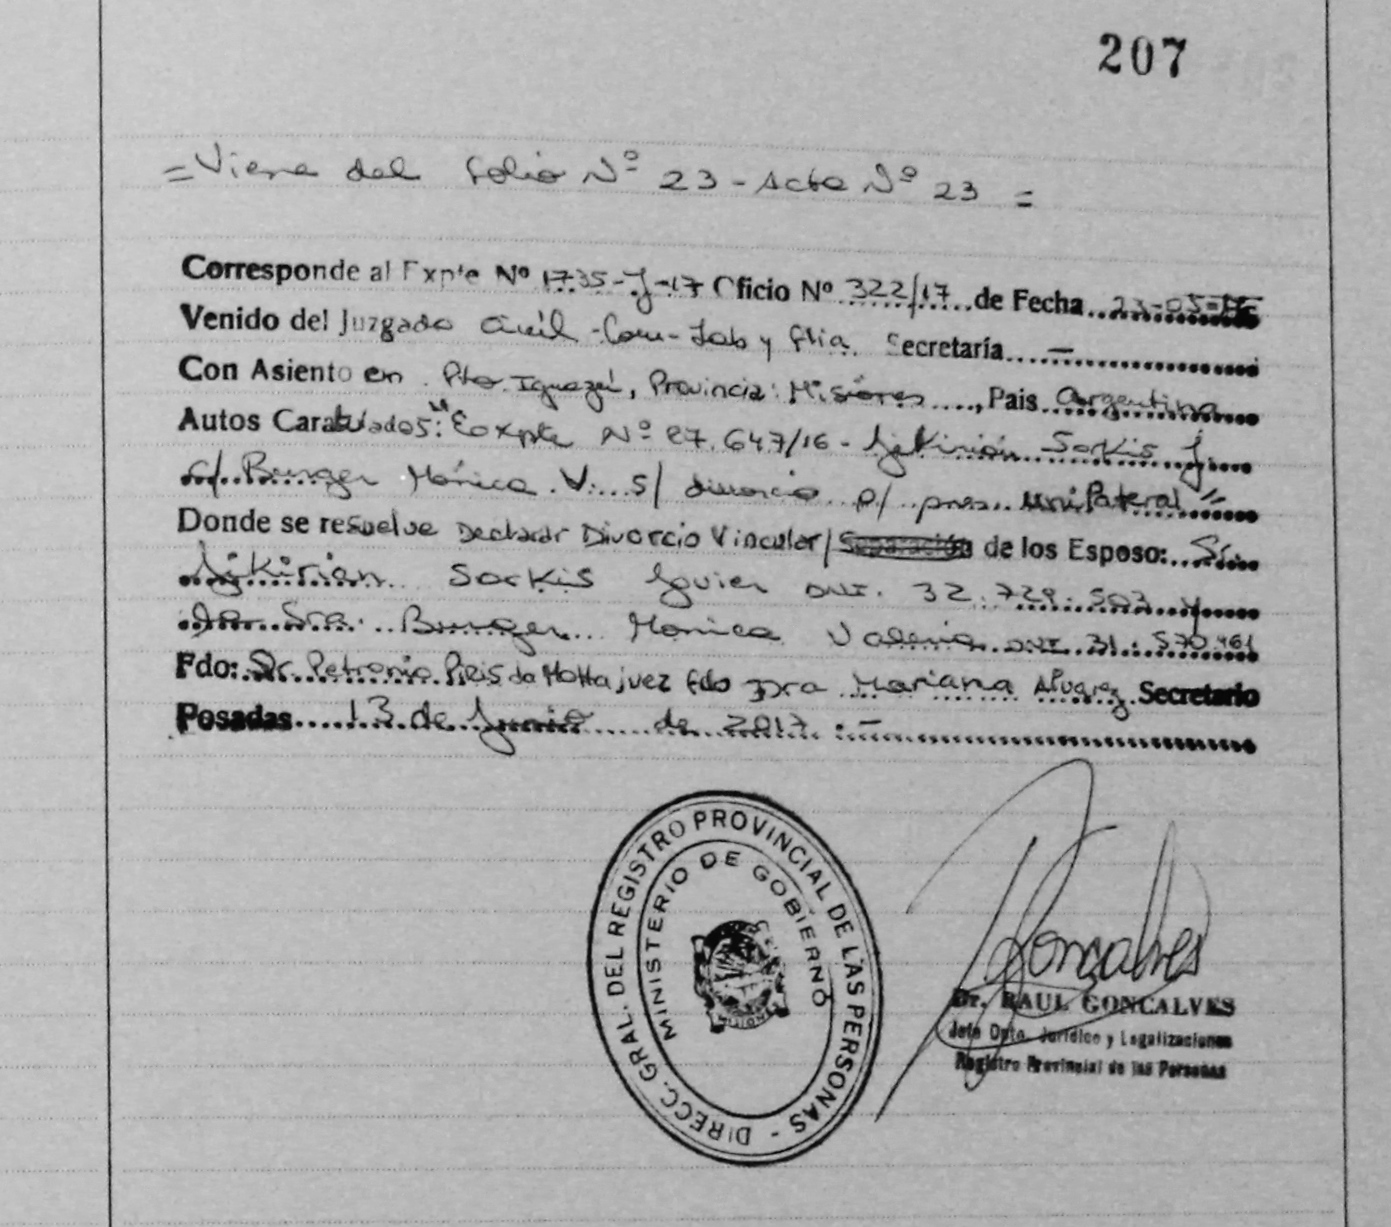 207
= Viene del folio Nº 23 - Acta Nº 23 =
Corresponde al Expte Nº 1735-J-17 Oficio Nº 322/17 de Fecha 23-05-17
Venido del Juzgado Civil-Com-Lab y flia. Secretaría —
Con Asiento en Pto. Iguazú, Provincia: Misiones, Pais Argentina
Autos Caratulados: "Expte Nº 27.647/16 - Sarkis J.
c/ Burger Mónica V. s/ divorcio p/ pres. unilateral"
Donde se resuelve Declarar Divorcio Vincular/Separación de los Esposo: Sr.
Sarkis Javier DNI. 32.729.503 y
la Sra. Burger Monica Valeria DNI 31.570.461
Fdo: Dr. Petronio Piris da Motta juez fdo Dra Mariana Alvarez Secretario
Posadas 13 de Junio de 2017.-
DIRECC. GRAL. DEL REGISTRO PROVINCIAL DE LAS PERSONAS -
MINISTERIO DE GOBIERNO
MISIONES
Goncalves
Dr. RAUL GONCALVES
Jefe Dpto. Jurídico y Legalizaciones
Registro Provincial de las Personas